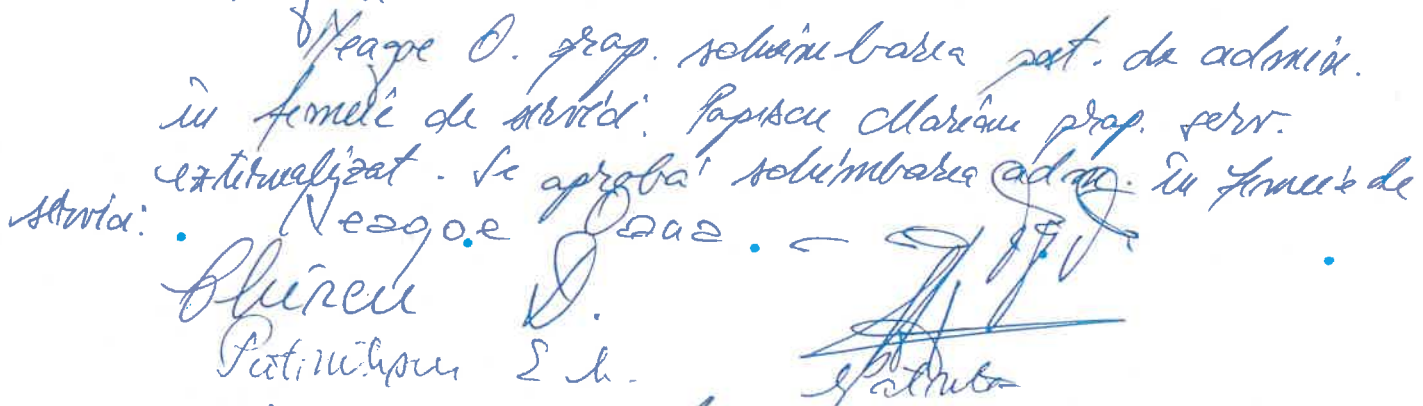 Neagoe O. prop. schimbarea post. de admin.
în femeie de servici. Popescu Marian prop. serv.
externalizat. Se aprobă schimbarea adm. în femeie de
servici.
Neagoe Oana
D.